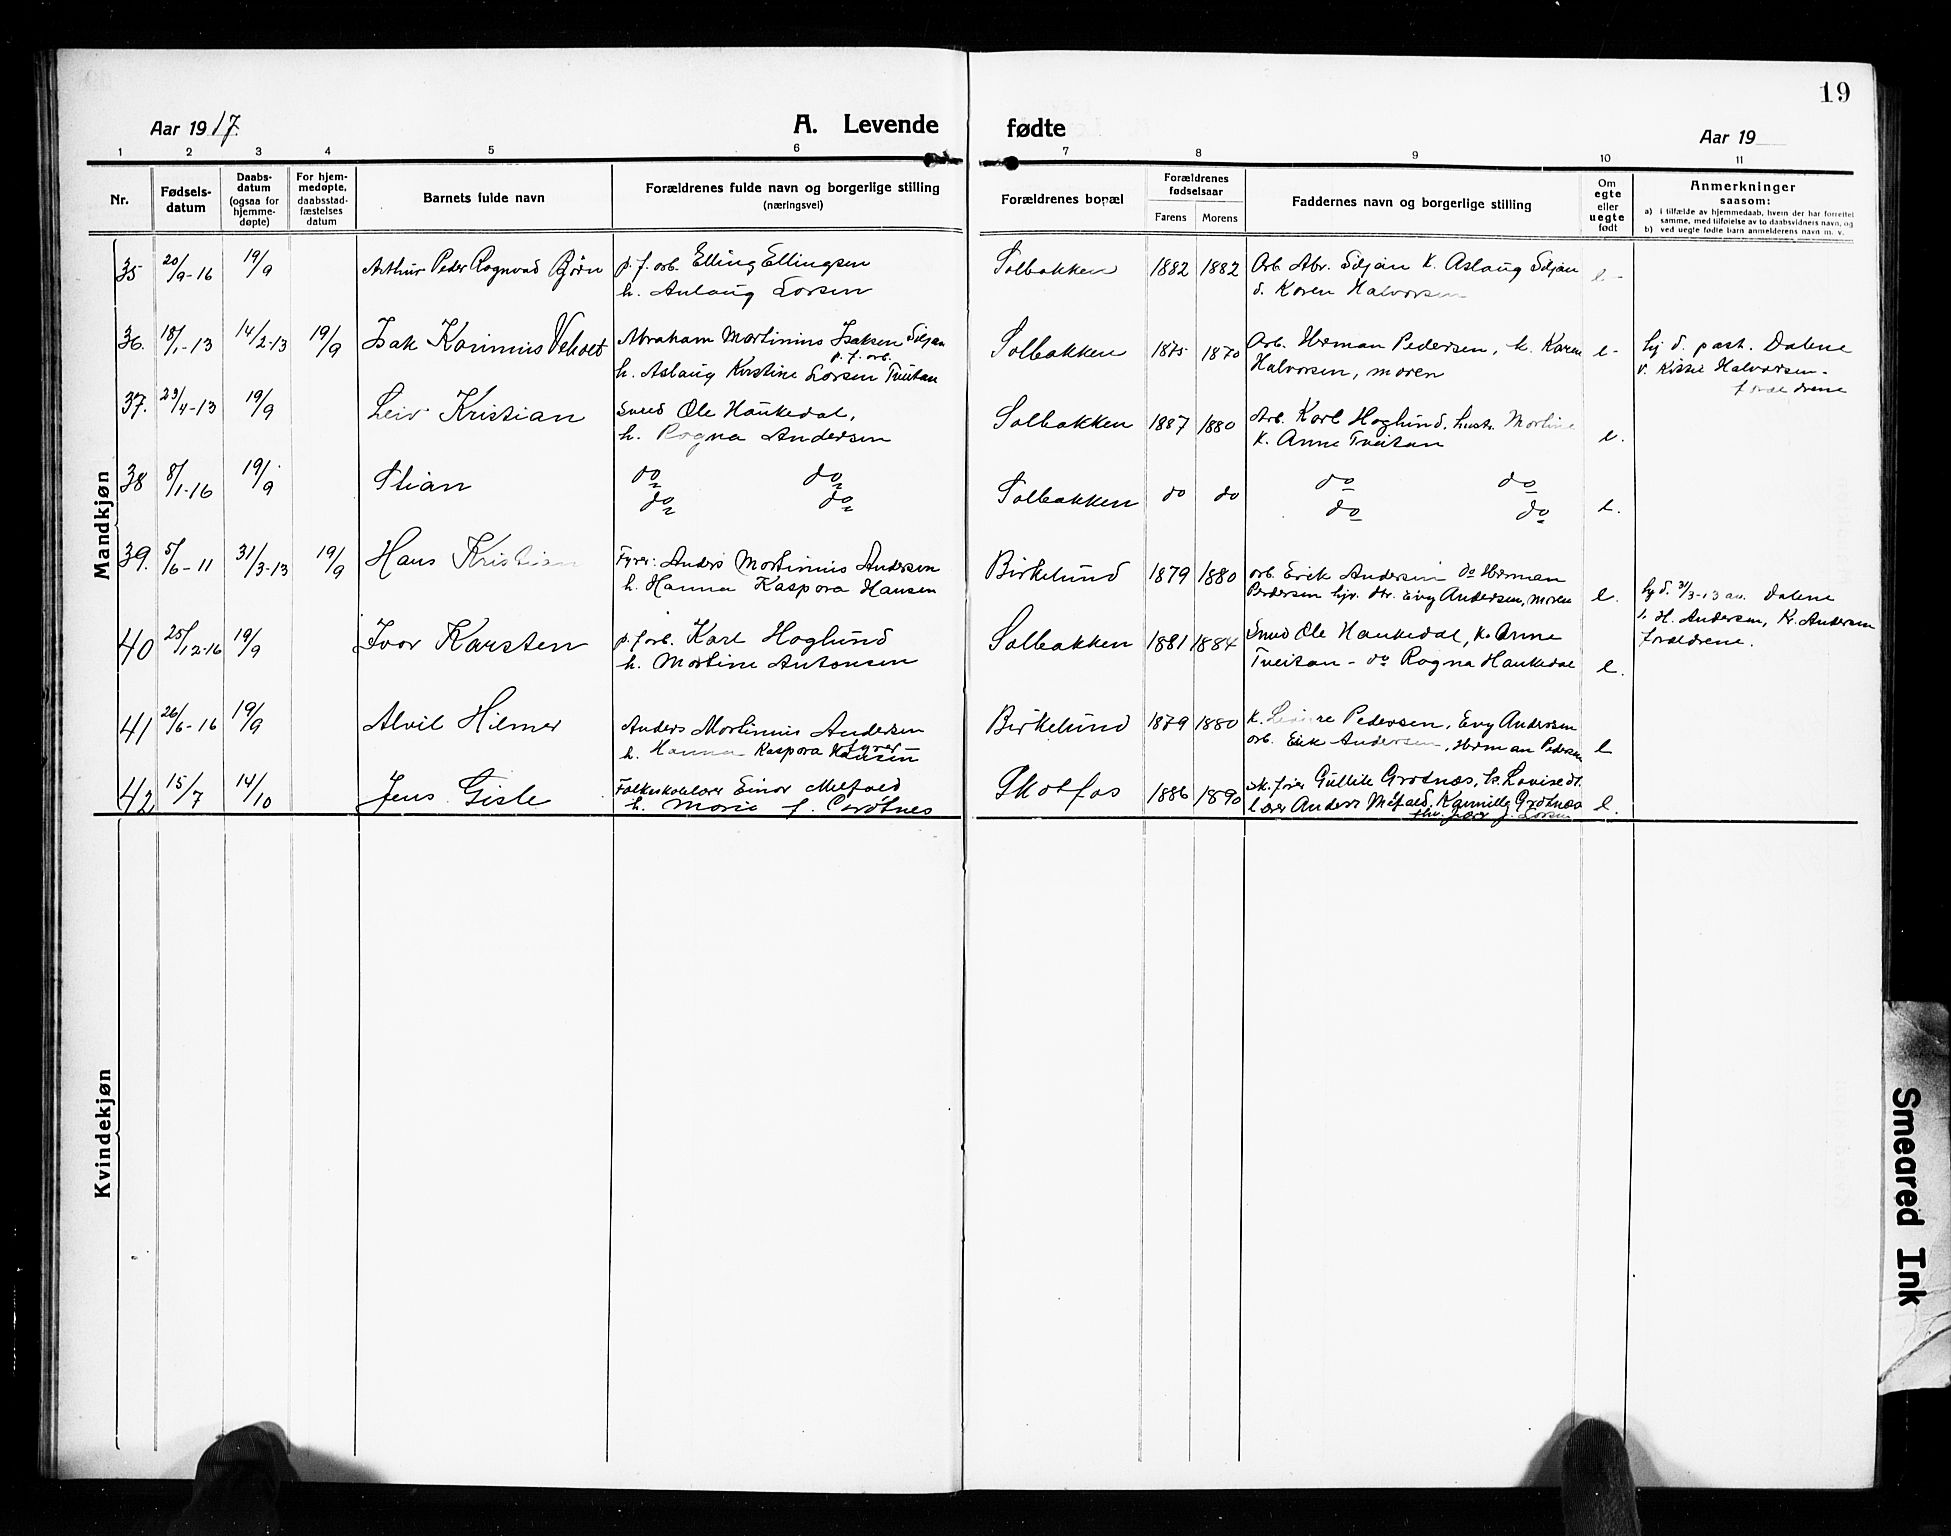 19
Aar 1917.
A. Levende fødte
Aar 19
1 2 3 4 5 6 7 8 9 10 11
Nr.
Fødsels-
datum
Daabs-
datum
(ogsaa for
hjemme-
døpte)
For hjem-
medøpte,
daabsstad-
fæstelses
datum
Barnets fulde navn
Forældrenes fulde navn og borgerlige stilling
(næringsvei)
Forældrenes bopæl
Forældrenes
fødselsaar
Farens Morens
Faddernes navn og borgerlige stilling
Om
egte
eller
uegte
født
Anmerkninger
saasom:
a) i tilfælde av hjemmedaab, hvem der har forrettet
samme, med tilføielse av to daabsvidners navn, og
b) ved uegte fødte barn anmelderens navn m. v.
Mandkjøn
35 20/9-16 19/9 Arthur Peder Ragnvad Bjørn p. f. arb. Elling Ellingsen Solbakken 1882 1882 Arb. Abr. Siljan K. Aslaug Siljan e-
h. Anlaug Larsen d. Karen Halvorsen
36. 18/1-13 14/2-13 19/9 Isak Karinius Abraham Martinius Isaksen Siljan Solbakken 1875 1870 Arb. Herman Pedersen, k. Karen e- hj. d. past. Dalene
p. f. arb.
h. Aslaug Kirstine Larsen Tveitan Halvorsen, moren v. Kittil Halvorsen-
forældrene
37. 23/4-13 19/9 Leiv Kristian Smed Ole Haukedal, Solbakken 1887 1880 Arb. Karl Hoglund, hustr. Martine e.
h. Ragna Andersen K. Anne Tveitan
38 8/1-16 19/9 Stian do do Solbakken do do do do e.
do do do do
39. 5/6-11 31/3-13 19/9 Hans Kristian Fyrb. Anders Martinius Andersen Birkelund 1879 1880 arb. Erik Andersen do Herman e. hj d. 31/3-13 av Dalene
h. Hanna Kaspara Hansen Pedersen hjv. str. Evy Andersen, moren v. H. Andersen, K. Andersen
forældrene.
40 25/12-16 19/9 Ivar Karsten p. f arb. Karl Hoglund Solbakken 1881 1884 Smed Ole Haukedal, k. Anne e.
h. Martine Antonsen Tveitan - do Ragna Haukedal
41 26/6-16 19/9 Alvil Hilmer Anders Martinius Andersen Birkelund 1879 1880 K. Pedersen, Evy Andersen e
h. Hanna Kaspara Hansen arb. Erik Andersen, Herman Pedersen
42 15/7 14/10 Jens Gisle Folkeskolelærer Einar Melfald Skotfos 1886 1890 Sk. fører Gullik Grotnæs, k. Lovise dt. e.
h. Marie f. Grotnes Lærer Anders Melfald, Kamilla Grotnæs
Lærer J. Larsen
Kvindekjøn
Smeared Ink